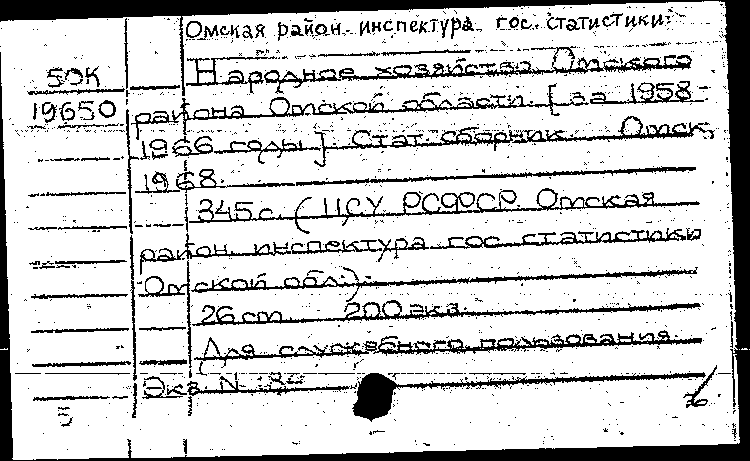 Омская район. инспектура гос. статистики.
50К
Народное хозяйство Омского
19650
района Омской области. [за 1958-
1966 годы]. Стат. сборник. Омск,
1968.
345 с. (ЦСУ РСФСР. Омская
район. инспектура гос. статистики
Омской обл.).
26 cm. 200 экз.
Для служебного пользования.
Экз. N :84
5